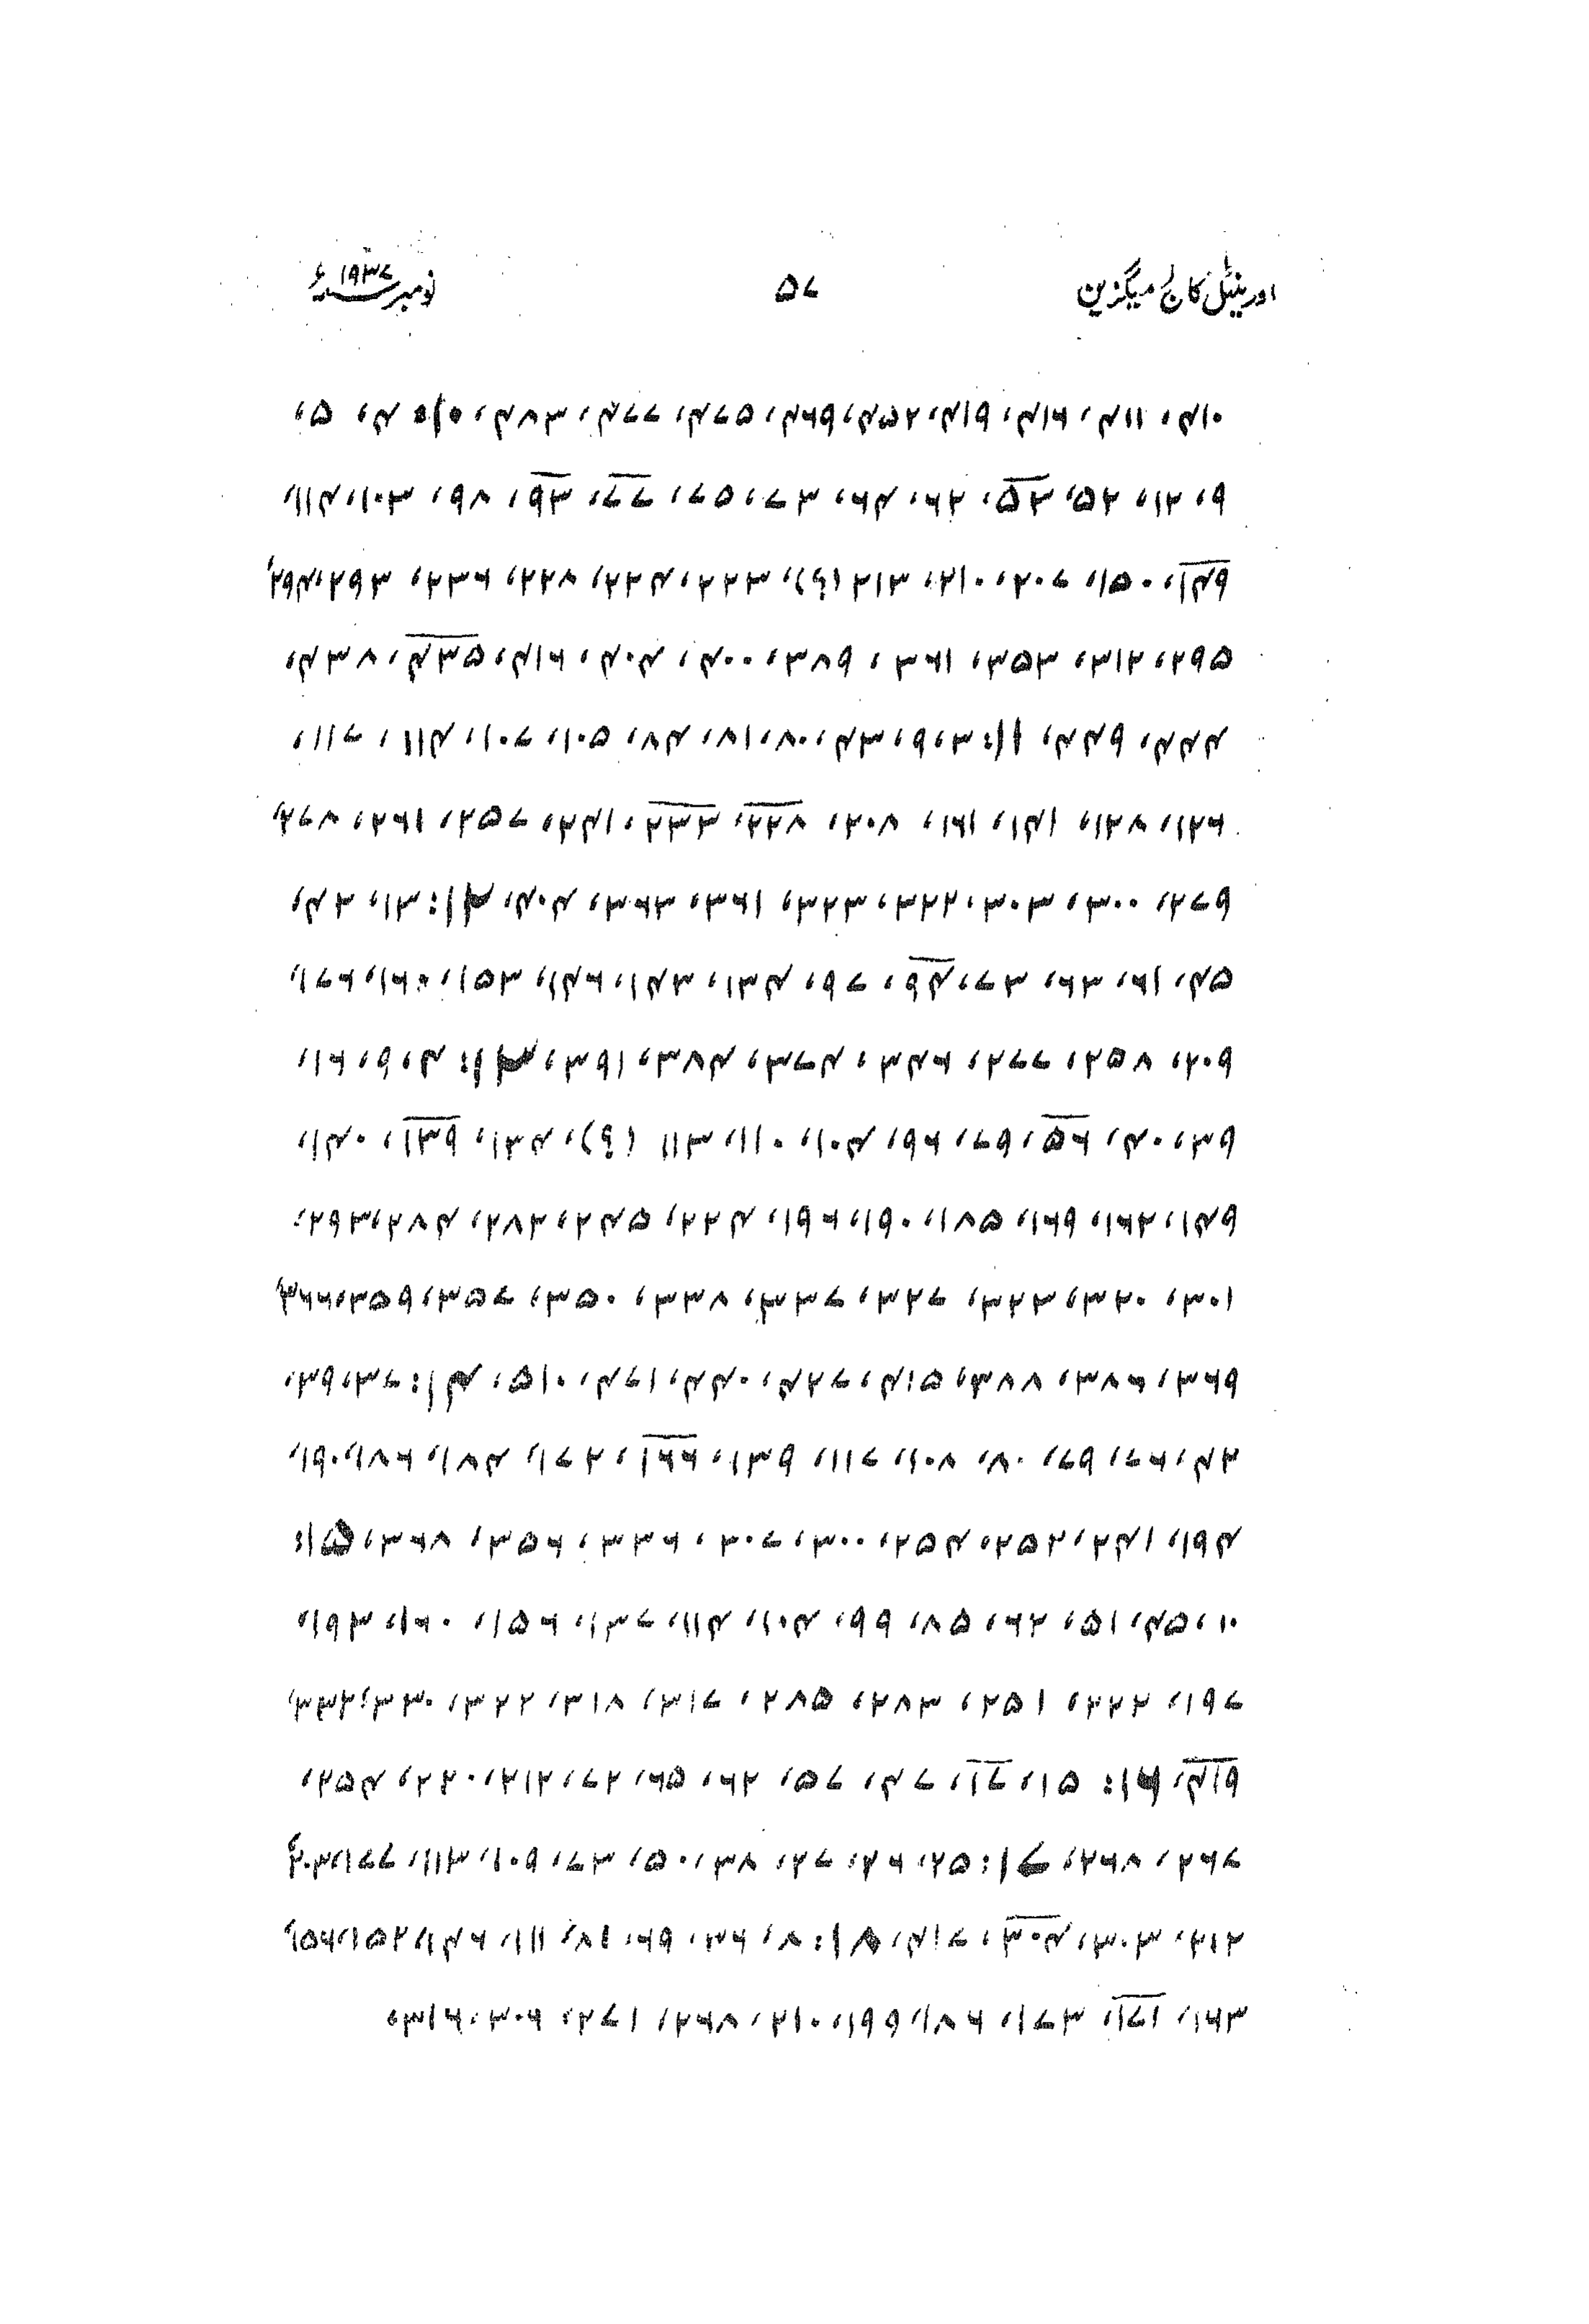 اورینٹل کالج میگزین ۵۷ نومبر سنہ ۱۹۳۷ء
۴۱۰، ۴۱۱، ۴۱۶، ۴۱۹، ۴۵۲، ۴۶۹، ۴۷۵، ۴۷۷، ۴۸۳، ۱۰: ۴، ۵،
۹، ۱۲، ۵۲، ۵۳، ۶۲، ۶۴، ۷۳، ۷۵، ۷۷، ۹۳، ۹۸، ۱۰۳، ۱۱۴،
۱۴۹، ۱۵۰، ۲۰۷، ۲۱۰، ۲۱۳ (؟)، ۲۲۳، ۲۲۴، ۲۲۸، ۲۳۶، ۲۹۳، ۲۹۴،
۲۹۵، ۳۱۲، ۳۵۳، ۳۶۱، ۳۸۹، ۴۰۰، ۴۰۴، ۴۱۶، ۴۳۵، ۴۳۸،
۴۴۴، ۴۴۹، ۱۱: ۳، ۹، ۴۳، ۸۰، ۸۱، ۸۴، ۱۰۵، ۱۰۷، ۱۱۴، ۱۱۷،
۱۲۶، ۱۲۸، ۱۴۱، ۱۶۱، ۲۰۸، ۲۲۸، ۲۳۳، ۲۴۱، ۲۵۷، ۲۶۱، ۲۷۸،
۲۷۹، ۳۰۰، ۳۰۳، ۳۲۲، ۳۲۳، ۳۶۱، ۳۶۳، ۴۰۴، ۱۲: ۱۳، ۴۲،
۴۵، ۶۱، ۶۳، ۷۳، ۹۴، ۹۷، ۱۳۴، ۱۴۳، ۱۴۶، ۱۵۳، ۱۶۰، ۱۷۶،
۲۰۹، ۲۵۸، ۲۷۷، ۳۴۶، ۳۷۴، ۳۸۴، ۳۹۱، ۱۳: ۴، ۹، ۱۶،
۳۹، ۴۰، ۵۶، ۷۹، ۹۶، ۱۰۴، ۱۱۰، ۱۱۳ (؟)، ۱۳۴، ۱۳۹، ۱۴۰،
۱۴۹، ۱۶۲، ۱۶۹، ۱۸۵، ۱۹۰، ۱۹۶، ۲۲۴، ۲۴۵، ۲۸۲، ۲۸۴، ۲۹۳،
۳۰۱، ۳۲۰، ۳۲۳، ۳۲۷، ۳۳۷، ۳۳۸، ۳۵۰، ۳۵۷، ۳۵۹، ۳۶۶،
۳۶۹، ۳۸۶، ۳۸۸، ۴۱۵، ۴۲۷، ۴۴۰، ۴۷۱، ۵۱۰، ۱۴: ۳۷، ۳۹،
۴۲، ۷۶، ۷۹، ۸۰، ۱۰۸، ۱۱۷، ۱۳۹، ۱۶۶، ۱۷۲، ۱۸۴، ۱۸۶، ۱۹۰،
۱۹۴، ۲۴۱، ۲۵۲، ۲۵۴، ۳۰۰، ۳۰۷، ۳۳۶، ۳۵۶، ۳۶۸، ۱۵:
۱۰، ۴۵، ۵۱، ۶۲، ۸۵، ۹۹، ۱۰۴، ۱۱۴، ۱۳۷، ۱۵۶، ۱۶۰، ۱۹۳،
۱۹۷، ۲۲۲، ۲۵۱، ۲۸۳، ۲۸۵، ۳۱۷، ۳۱۸، ۳۲۲، ۳۳۰، ۳۳۲،
۴۱۹، ۱۶: ۱۵، ۱۷، ۴۷، ۵۷، ۶۲، ۶۵، ۷۲، ۲۱۲، ۲۳۰، ۲۵۴،
۲۶۷، ۲۶۸، ۱۷: ۲۵، ۲۶، ۲۷، ۳۸، ۵۰، ۷۳، ۱۰۹، ۱۱۳، ۱۷۷، ۲۰۳،
۲۱۲، ۳۰۳، ۳۰۴، ۴۱۷، ۱۸: ۸، ۳۶، ۶۹، ۸۱، ۱۱۱، ۱۴۶، ۱۵۲، ۱۵۶،
۱۶۳، ۱۷۱، ۱۷۳، ۱۸۶، ۱۹۹، ۲۱۰، ۲۶۸، ۲۷۱، ۳۰۶، ۳۱۶،